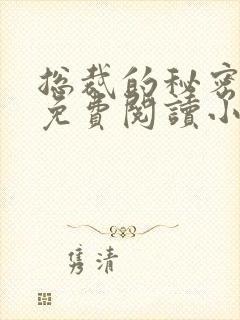 总裁的秘密
免費閱讀小
隽清